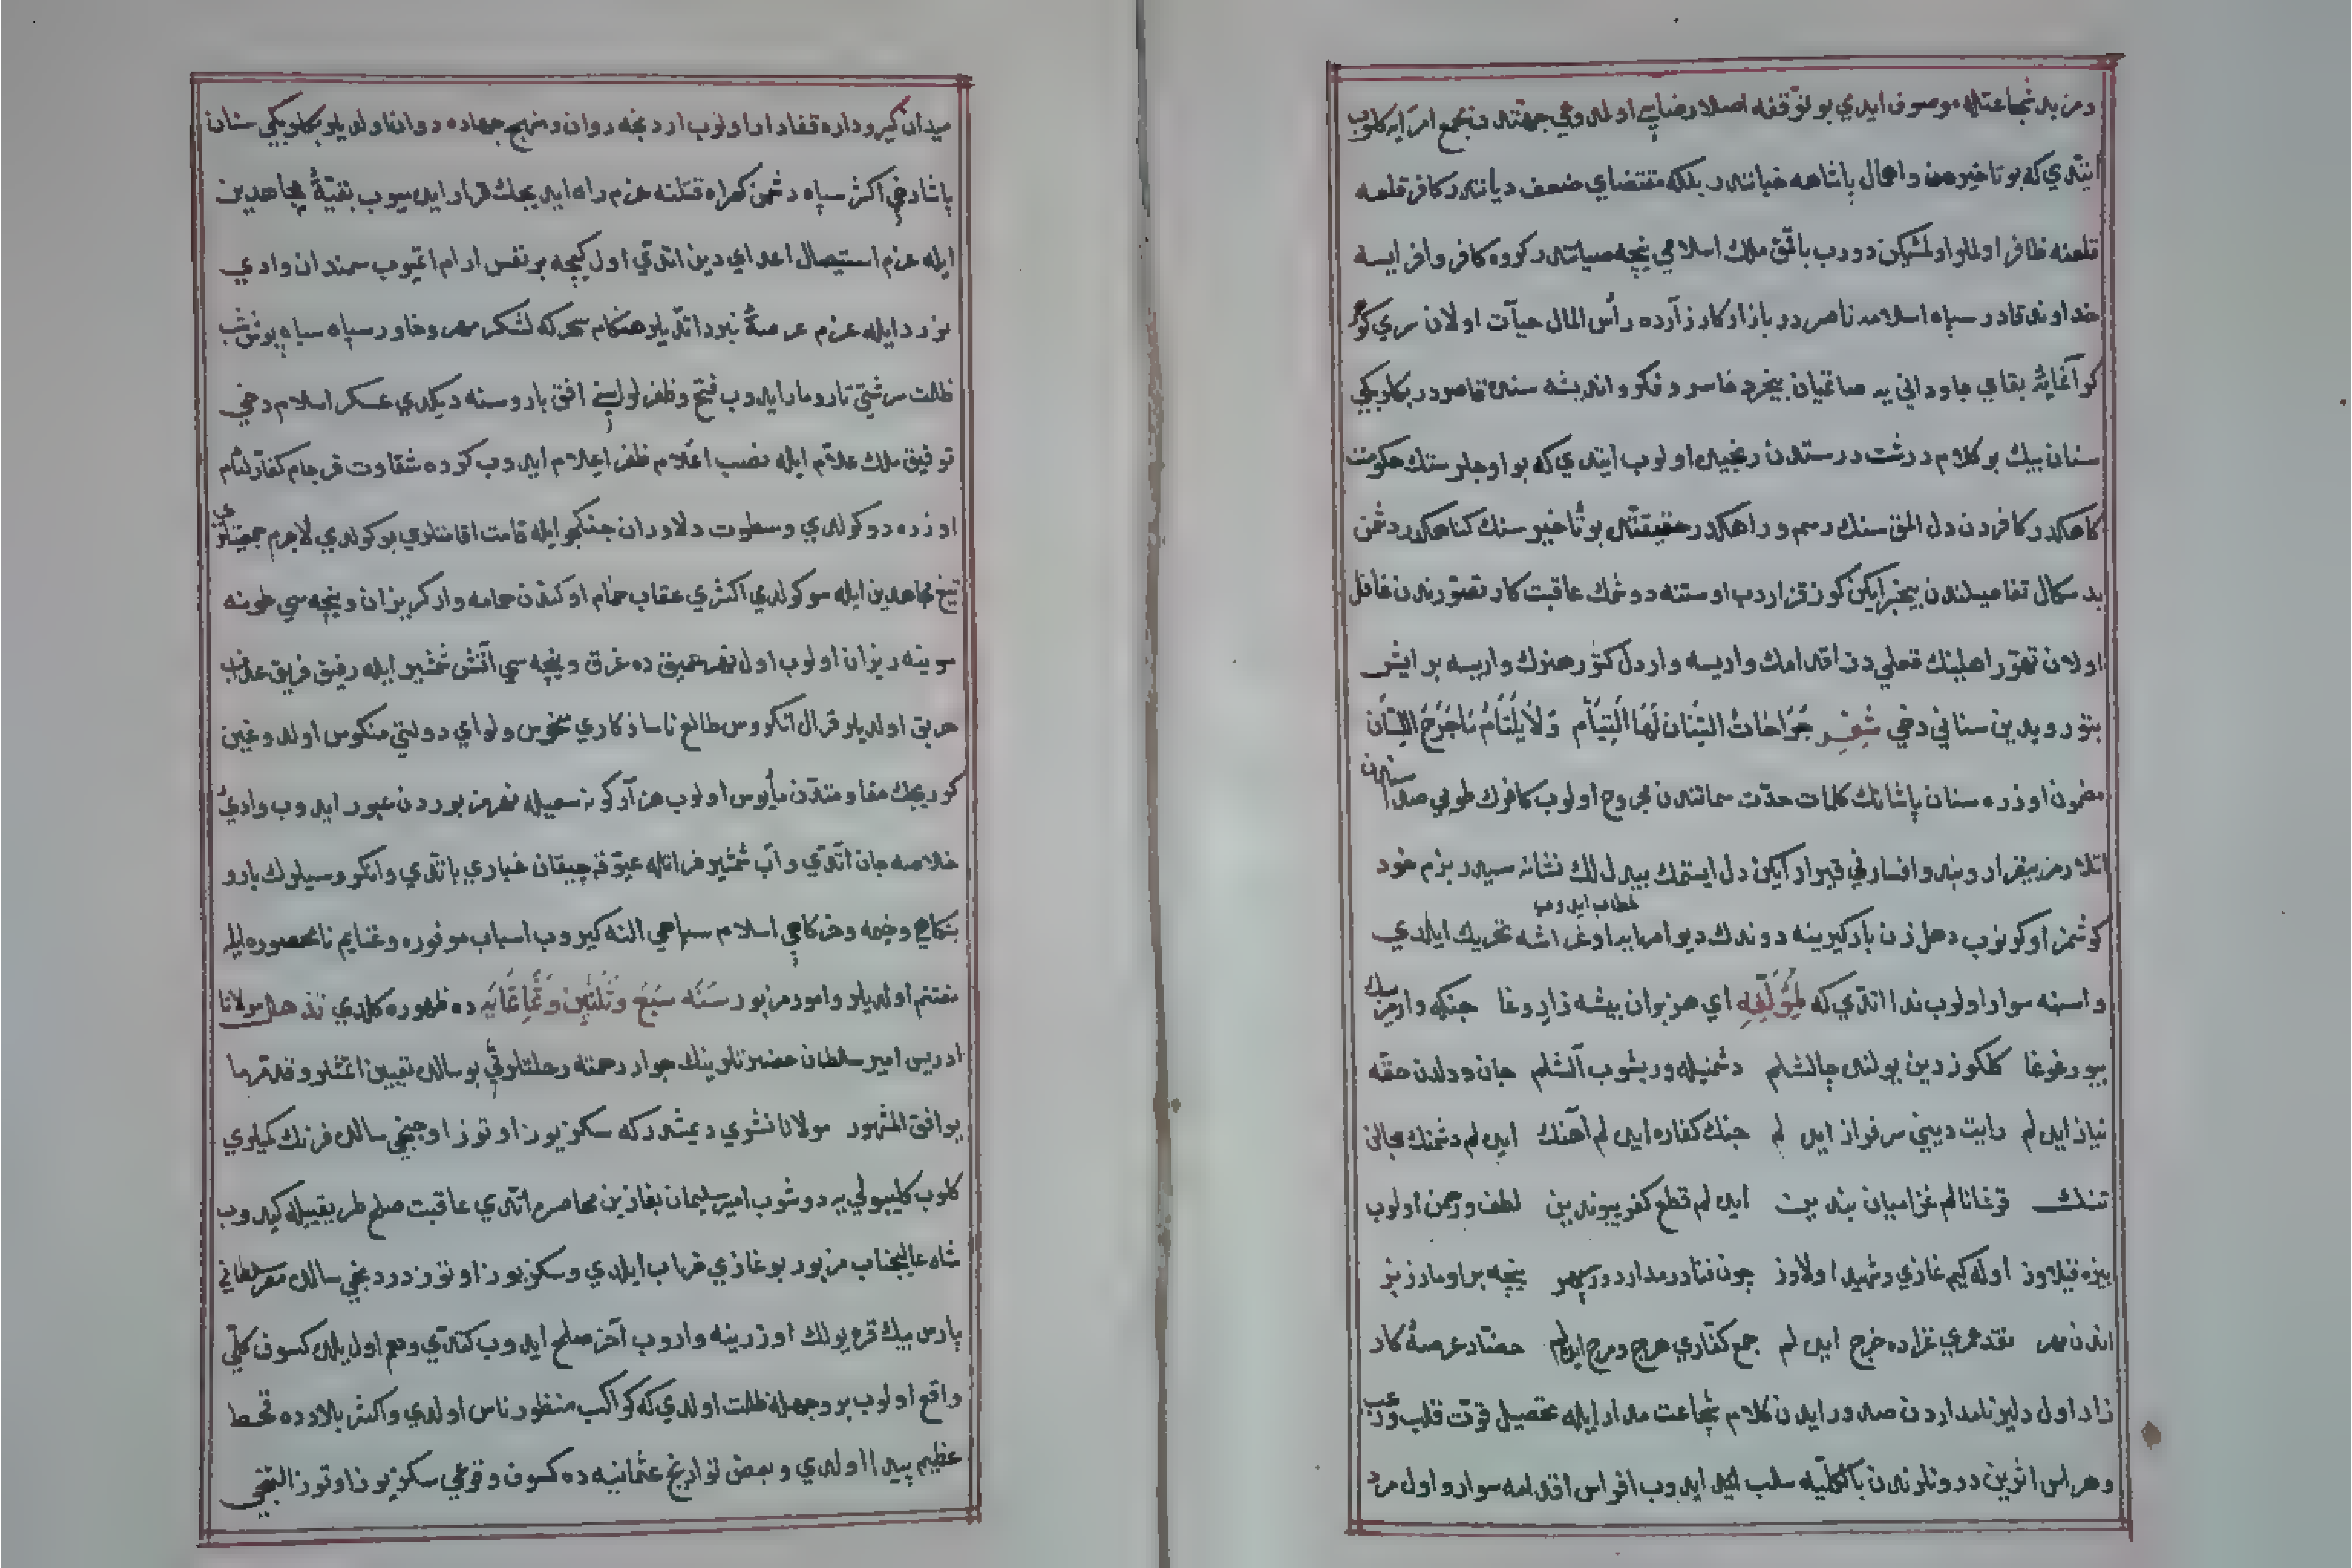 ومزید شجاعتله موصوف ایدي بو توقفه اصلا رضاسي اولمدوغي جهتدن مجمع امرایه کلوب
ایتدي که بو تاخیر واهمال پاشاهه خیانتدر بلکه مقتضاي ضعف دیانتدر کافر قلعه
قلعنه ظافر اولمشکن دورب باقمق ملك اسلامي نیجه صیانتدر کروه کافر وافر ایسه
خداوند قادر سپاه اسلامه ناصردر بازار کارزارده رأس المال حیات اولان سري
بقاي جاوداني یه صاتمیان بیخرد خاسر وفکر واندیشه سنده قاصردر بکلربکي
سنان بیك بو کلام درشت درستدن رنجیده اولوب ایتدي که بو اوجلر سنك حکومت
کاهکدر کافردن دل المق سنك رسم وراهکدر حقیقتده بو تاخیر سنك کناهکدر دشمن
بد سکال تفاصیلندن بیخبر ایکن کوز قزاردب اوستنه دوشمك عاقبت کار تصورندن غافل
اولان تهور اهلینك فعلي در اقدامك واریسه واردل کتور هنرك واریسه بر ایش
بتور ویدین سناني دخي شعر جراحات السنان لها التیام ولا یلتام ما جرح اللسان
مضمون اوزره سنان پاشانك کلمات حدت سماتندن مجروح اولوب کافرك طوپي صداسندن
اتلارمز بیقرار وبند وافساري قیرار ایکن دل ایستمك بیدل لك نشانه سیدر بزم خود
کوشمز اوکونوب دهل زن بارکیرینه دوندك دیو امرایه اوغراشه تحریك ایلدي خطاب ایدوب
واسبنه سوار اولوب ندا اتدي که لمؤلفه اي هزبران بیشه زار وغا جنکه وارمز
بیور غوغا کلکوز دین یولنده چالشالم دشمنیله وریشوب آلشالم جان ودلدن حقه
نیاز ایده لم رایت دیني سرفراز ایده لم جنك کفاره ایده لم آهنك ایده لم دشمنك مجالن
تنك قرغانالم غزا میان بنده بن ایده لم قطع کفر پیوندین لطف رحمن اولوب
بیزه قیلاوز اوله کیم غازي وشهید اولاوز چون فنا در مدار دور سپهر نیجه بر اومارز بز
اندن مهر نقد عمري غزاده خرج ایده لم جمع کفاري هرج ومرج ایده لم حضار عرصهٔ کار
زار اول دلیر نامداردن صدور ایدن کلام شجاعت مدار ایله تحصیل قوت قلب
وهراس اثرین درونلرندن بالکلیه سلب ایدوب افراس اقدامه سوار واول مرد
میدان کیر وداره قفادار اولوب اردنجه روان ومنهج جهاده دوان اولدیلر بکلربکي سنان
پاشا دخي اکثر سپاه دشمن کمراه قتلنه عزم راه ایدیجك قرار ایده میوب بقیهٔ مجاهدین
ایله عزم استیصال اعداي دین اتدي اول کیجه بر نفس ارام اتمیوب سمندان وادي
نورد ایله عزم عرصهٔ نبرد اتدیلر هنکام سحر که لشکر مهر وخاور سپاه سیاه پوش شب
ظلمت سرشتي تارومار ایدوب فتح وظفر لواسني افق بارو سنه دیکدي عسکر اسلام دخي
توفیق ملك علام ایله نصب اعلام ظفر اعلام ایدوب کروه شقاوت فرجام کفار لئام
اوزره دوکولدي وسطوت دلاوران جنکجو ایله قامت اقامتلري بوکولدي لاجرم جمعیتلري
تیغ مجاهدین ایله سوکولدي اکثري عقاب حمام اوکندن حمامه وار کریزان ونیجه سي طونه
سوینه ریزان اولوب اول نهر عمیق ده غرق ونیجه سي آتش شمشیر ایله رفیق فریق عذاب
حریق اولدیلر قرال انکروس طالع ناسازکاري منحوس ولواي دولتي منکوس اولدوغین
کوریجك مقاومتدن مأیوس اولوب هزار کونه سعیله نهر مزبوردن عبور ایدوب وادي
خلاصه جان اتدي واب شمشیر غزاتله عیوقه چیقان غباري باتدي وانکروسیلرك بارو
بنکاهي وخیمه وخرکاهي اسلام سپاهي النه کیروب اسباب موفوره وغنایم نامحصوره ایله
مغتنم اولدیلر وامور مزبور سنه سبع وثلثین وثمانمایه ده ظهوره کلدي مولانا
ادریس امیر سلطان حضرتلرینك جوار رحمته رحلتلرني بو سالده تعیین اتمشلر وقد مر ما
یوافق المشهور مولانا نشري دیمشدر که سکز یوز اوتوز اوچنجي سالده فرنك کمیلري
کلوب کلیبولي یه دوشوب امیر سلیمان بغازین محاصره اتدي عاقبت صلح طریقیله کیدوب
شاه عالیجناب مزبور بوغازي خراب ایلدي وسکز یوز اوتوز دردنجي سالده مصر سلطاني
بارس بیك قره یولك اوزرینه واروب آخر صلح ایدوب کتدي وهم اول ییلده کسوف کلي
واقع اولوب بر وجهله ظلمت اولدي که کواکب منظور ناس اولدي واکثر بلادده قحط
عظیم پیدا اولدي وبعض تواریخ عثمانیه ده کسوف وقوعي سکز یوز اوتوز التنجي